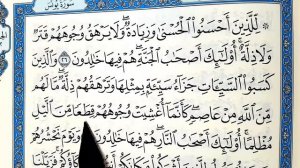 سُورَةُ يُونُسَ
۞ لِّلَّذِينَ أَحْسَنُوا۟ ٱلْحُسْنَىٰ وَزِيَادَةٌ ۖ وَلَا يَرْهَقُ وُجُوهَهُمْ قَتَرٌ
وَلَا ذِلَّةٌ ۚ أُو۟لَٰٓئِكَ أَصْحَٰبُ ٱلْجَنَّةِ ۖ هُمْ فِيهَا خَٰلِدُونَ ٢٦ وَٱلَّذِينَ
كَسَبُوا۟ ٱلسَّيِّـَٔاتِ جَزَآءُ سَيِّئَةٍۭ بِمِثْلِهَا وَتَرْهَقُهُمْ ذِلَّةٌ ۖ مَّا لَهُم
مِّنَ ٱللَّهِ مِنْ عَاصِمٍ ۖ كَأَنَّمَآ أُغْشِيَتْ وُجُوهُهُمْ قِطَعًا مِّنَ ٱلَّيْلِ
مُظْلِمًا ۚ أُو۟لَٰٓئِكَ أَصْحَٰبُ ٱلنَّارِ ۖ هُمْ فِيهَا خَٰلِدُونَ ٢٧ وَيَوْمَ نَحْشُرُهُمْ